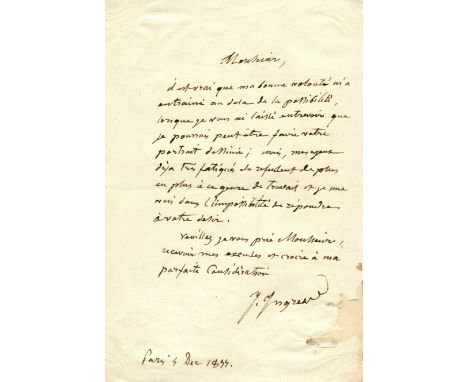 Monsieur,
il est vrai que ma bonne volonté m'a
entrainé au dela de la possibilité,
lorsque je vous ai laissé entrevoir que
je pourrais peut être faire votre
portrait dessiné; mais, mes yeux
déja très fatigués se refusent de plus
en plus à ce genre de travail et je me
vois dans l'impossibilité de répondre
à votre desir.
veuillez je vous prie Monsieur,
recevoir mes excuses et croire à ma
parfaite Considération
J. Ingres
Paris 4 Dec